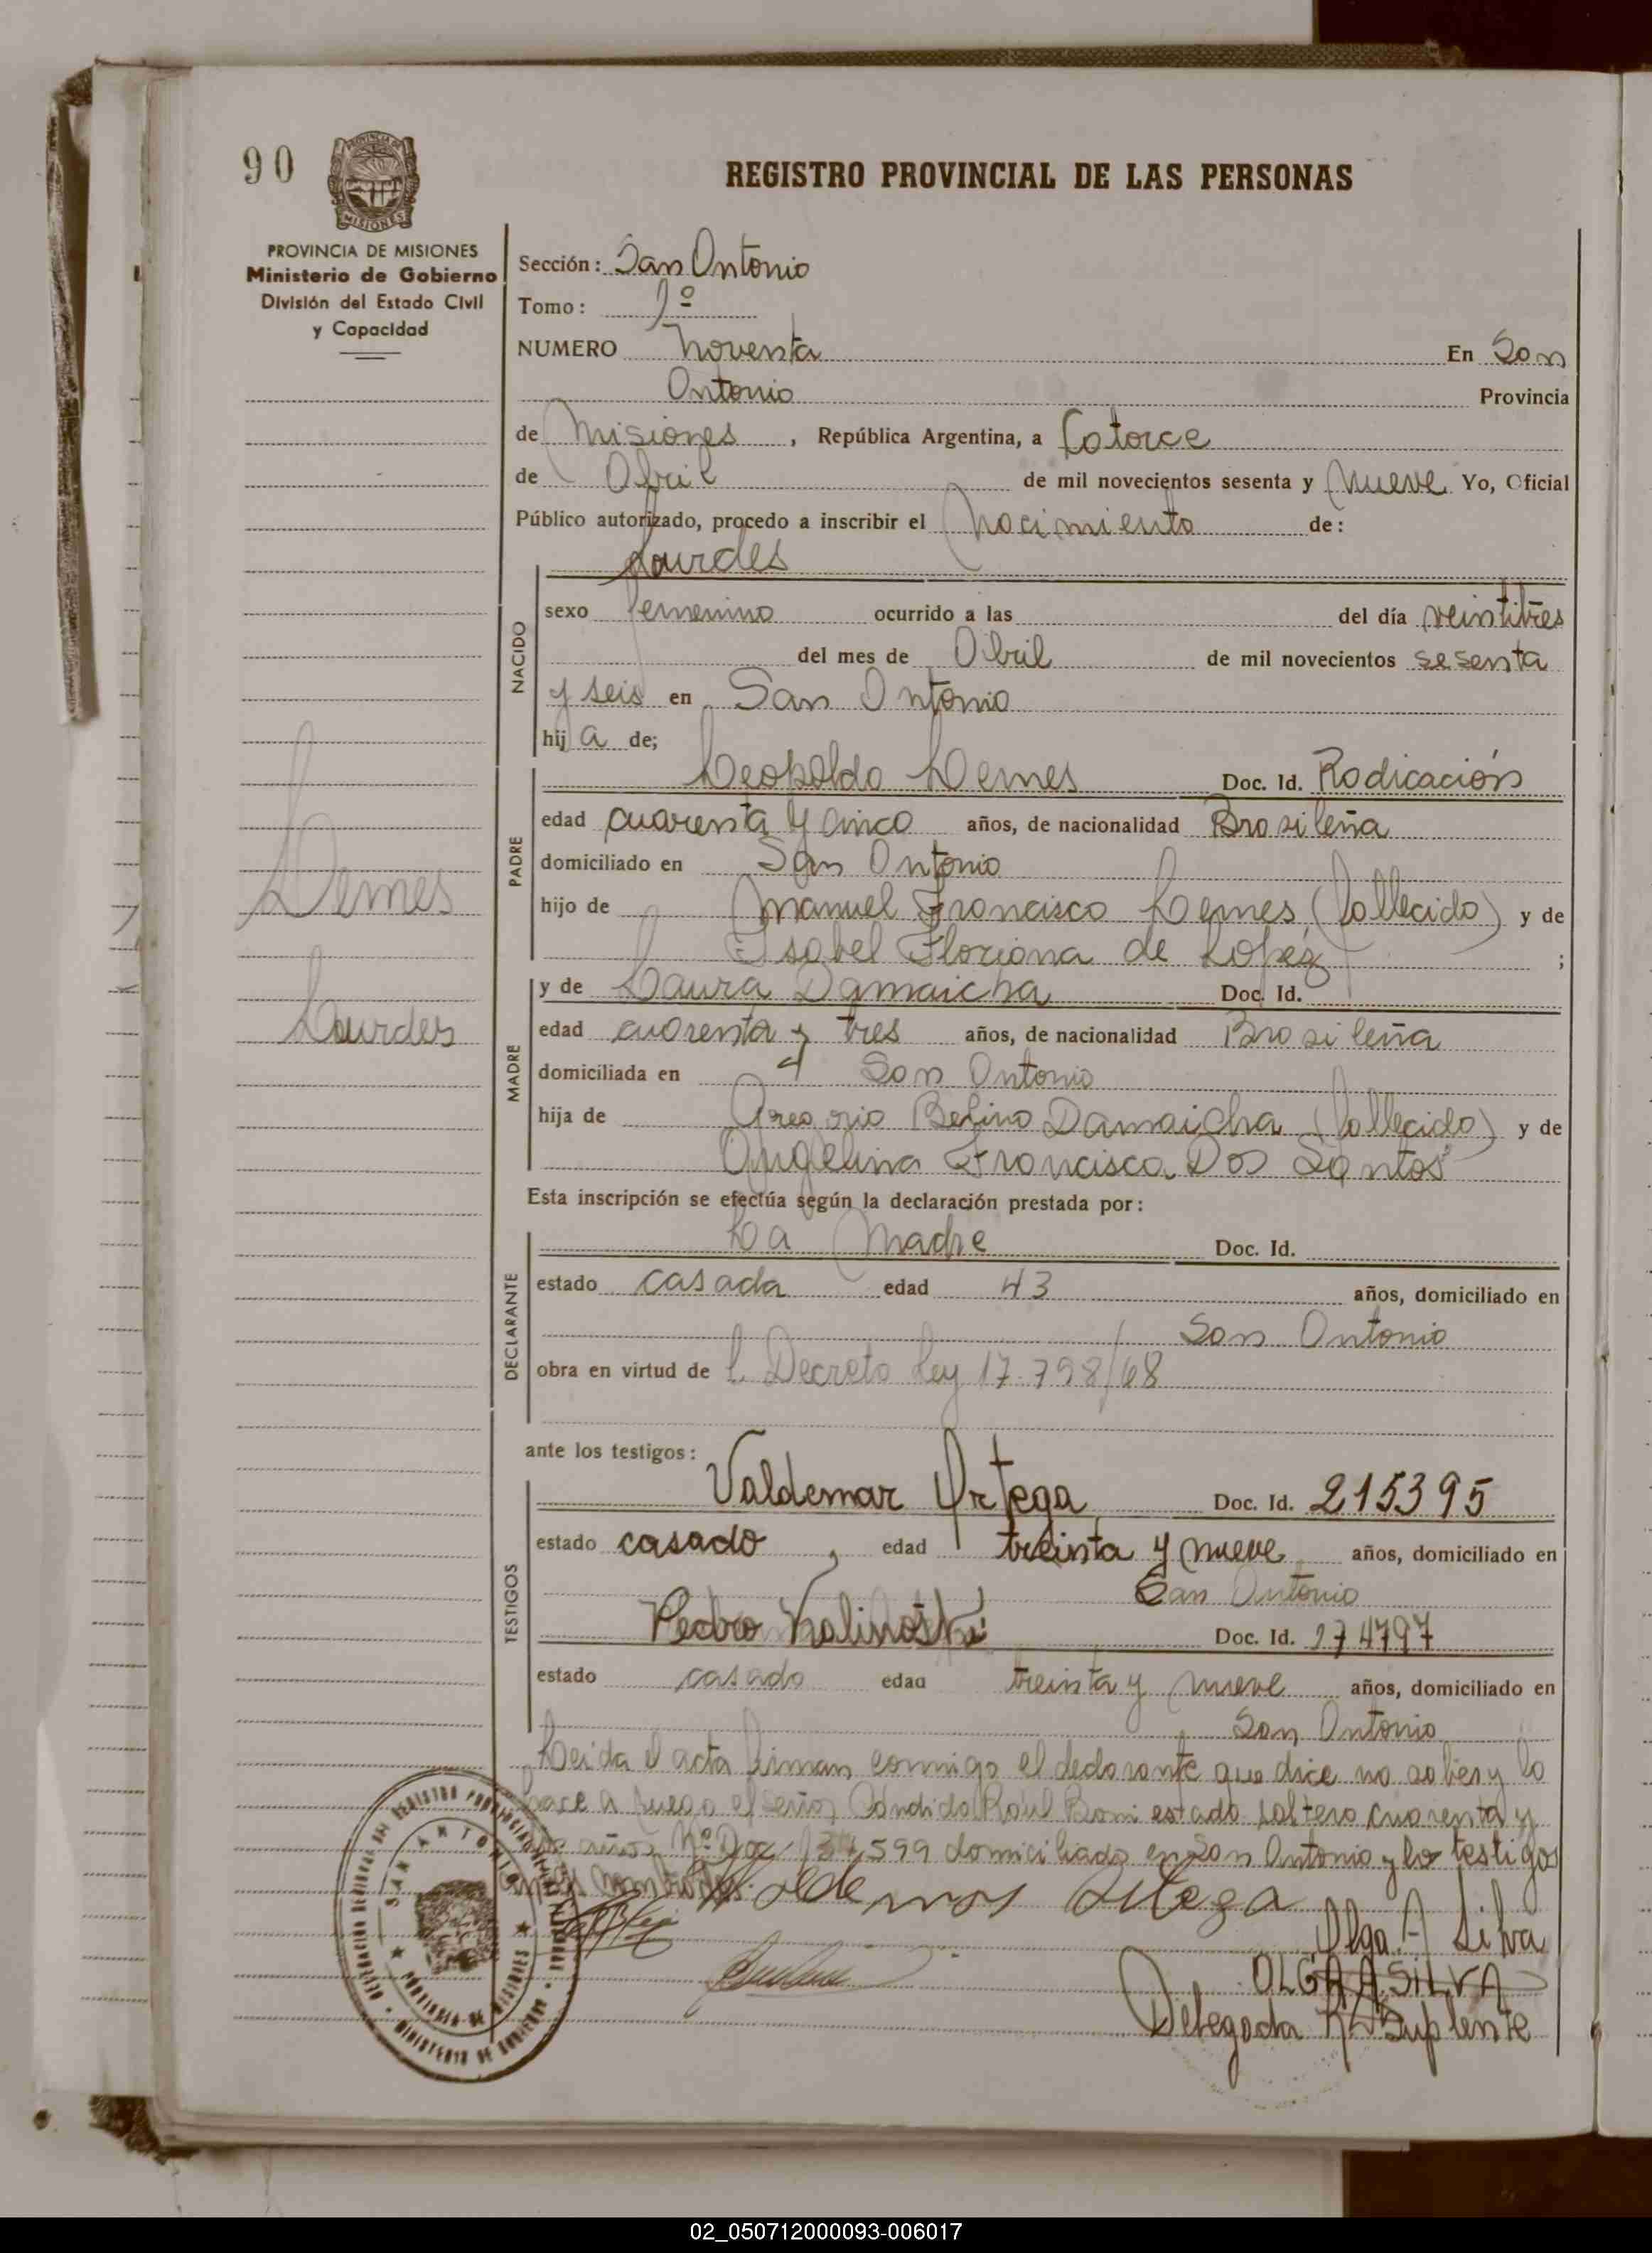 90
REGISTRO PROVINCIAL DE LAS PERSONAS
MISIONES
PROVINCIA DE MISIONES
Ministerio de Gobierno
División del Estado Civil
y Capacidad
Sección: San Antonio
Tomo: 1º
NUMERO Noventa En San
Antonio Provincia
de Misiones, República Argentina, a Catorce
de Abril de mil novecientos sesenta y Nueve Yo, Oficial
Público autorizado, procedo a inscribir el Nacimiento de:
Lourdes
NACIDO
sexo femenino ocurrido a las del día veintitres
del mes de Abril de mil novecientos sesenta
y seis en San Antonio
hija de;
PADRE
Leopoldo Lemes Doc. Id. Radicación
edad cuarenta y cinco años, de nacionalidad Brasileña
domiciliado en San Antonio
hijo de Manuel Francisco Lemes (fallecido) y de
Isabel Floriana de López ;
Lemes
Lourdes
MADRE
y de Laura Damaicha Doc. Id.
edad cuarenta y tres años, de nacionalidad Brasileña
domiciliada en San Antonio
hija de Gregorio Damaicha (fallecido) y de
Angelina Francisca Dos Santos
Esta inscripción se efectúa según la declaración prestada por:
DECLARANTE
La Madre Doc. Id.
estado casada edad 43 años, domiciliado en
San Antonio
obra en virtud de l. Decreto Ley 17.798/68
ante los testigos:
TESTIGOS
Valdemar Ortega Doc. Id. 215395
estado casado, edad treinta y nueve años, domiciliado en
San Antonio
Pedro Kalinoski Doc. Id. 174797
estado casado edad treinta y nueve años, domiciliado en
San Antonio
Leida el acta firman conmigo el declarante que dice no saber y lo
hace a ruego el señor Candido Raúl Boni estado soltero cuarenta y
años Nº Doc 599 domiciliado en San Antonio y lo testigos
SAN ANTONIO
PROVINCIA DE MISIONES
MINISTERIO DE GOBIERNO
Valdemar Ortega
Olga A Silva
OLGA A SILVA
Delegada Suplente
02_050712000093-006017